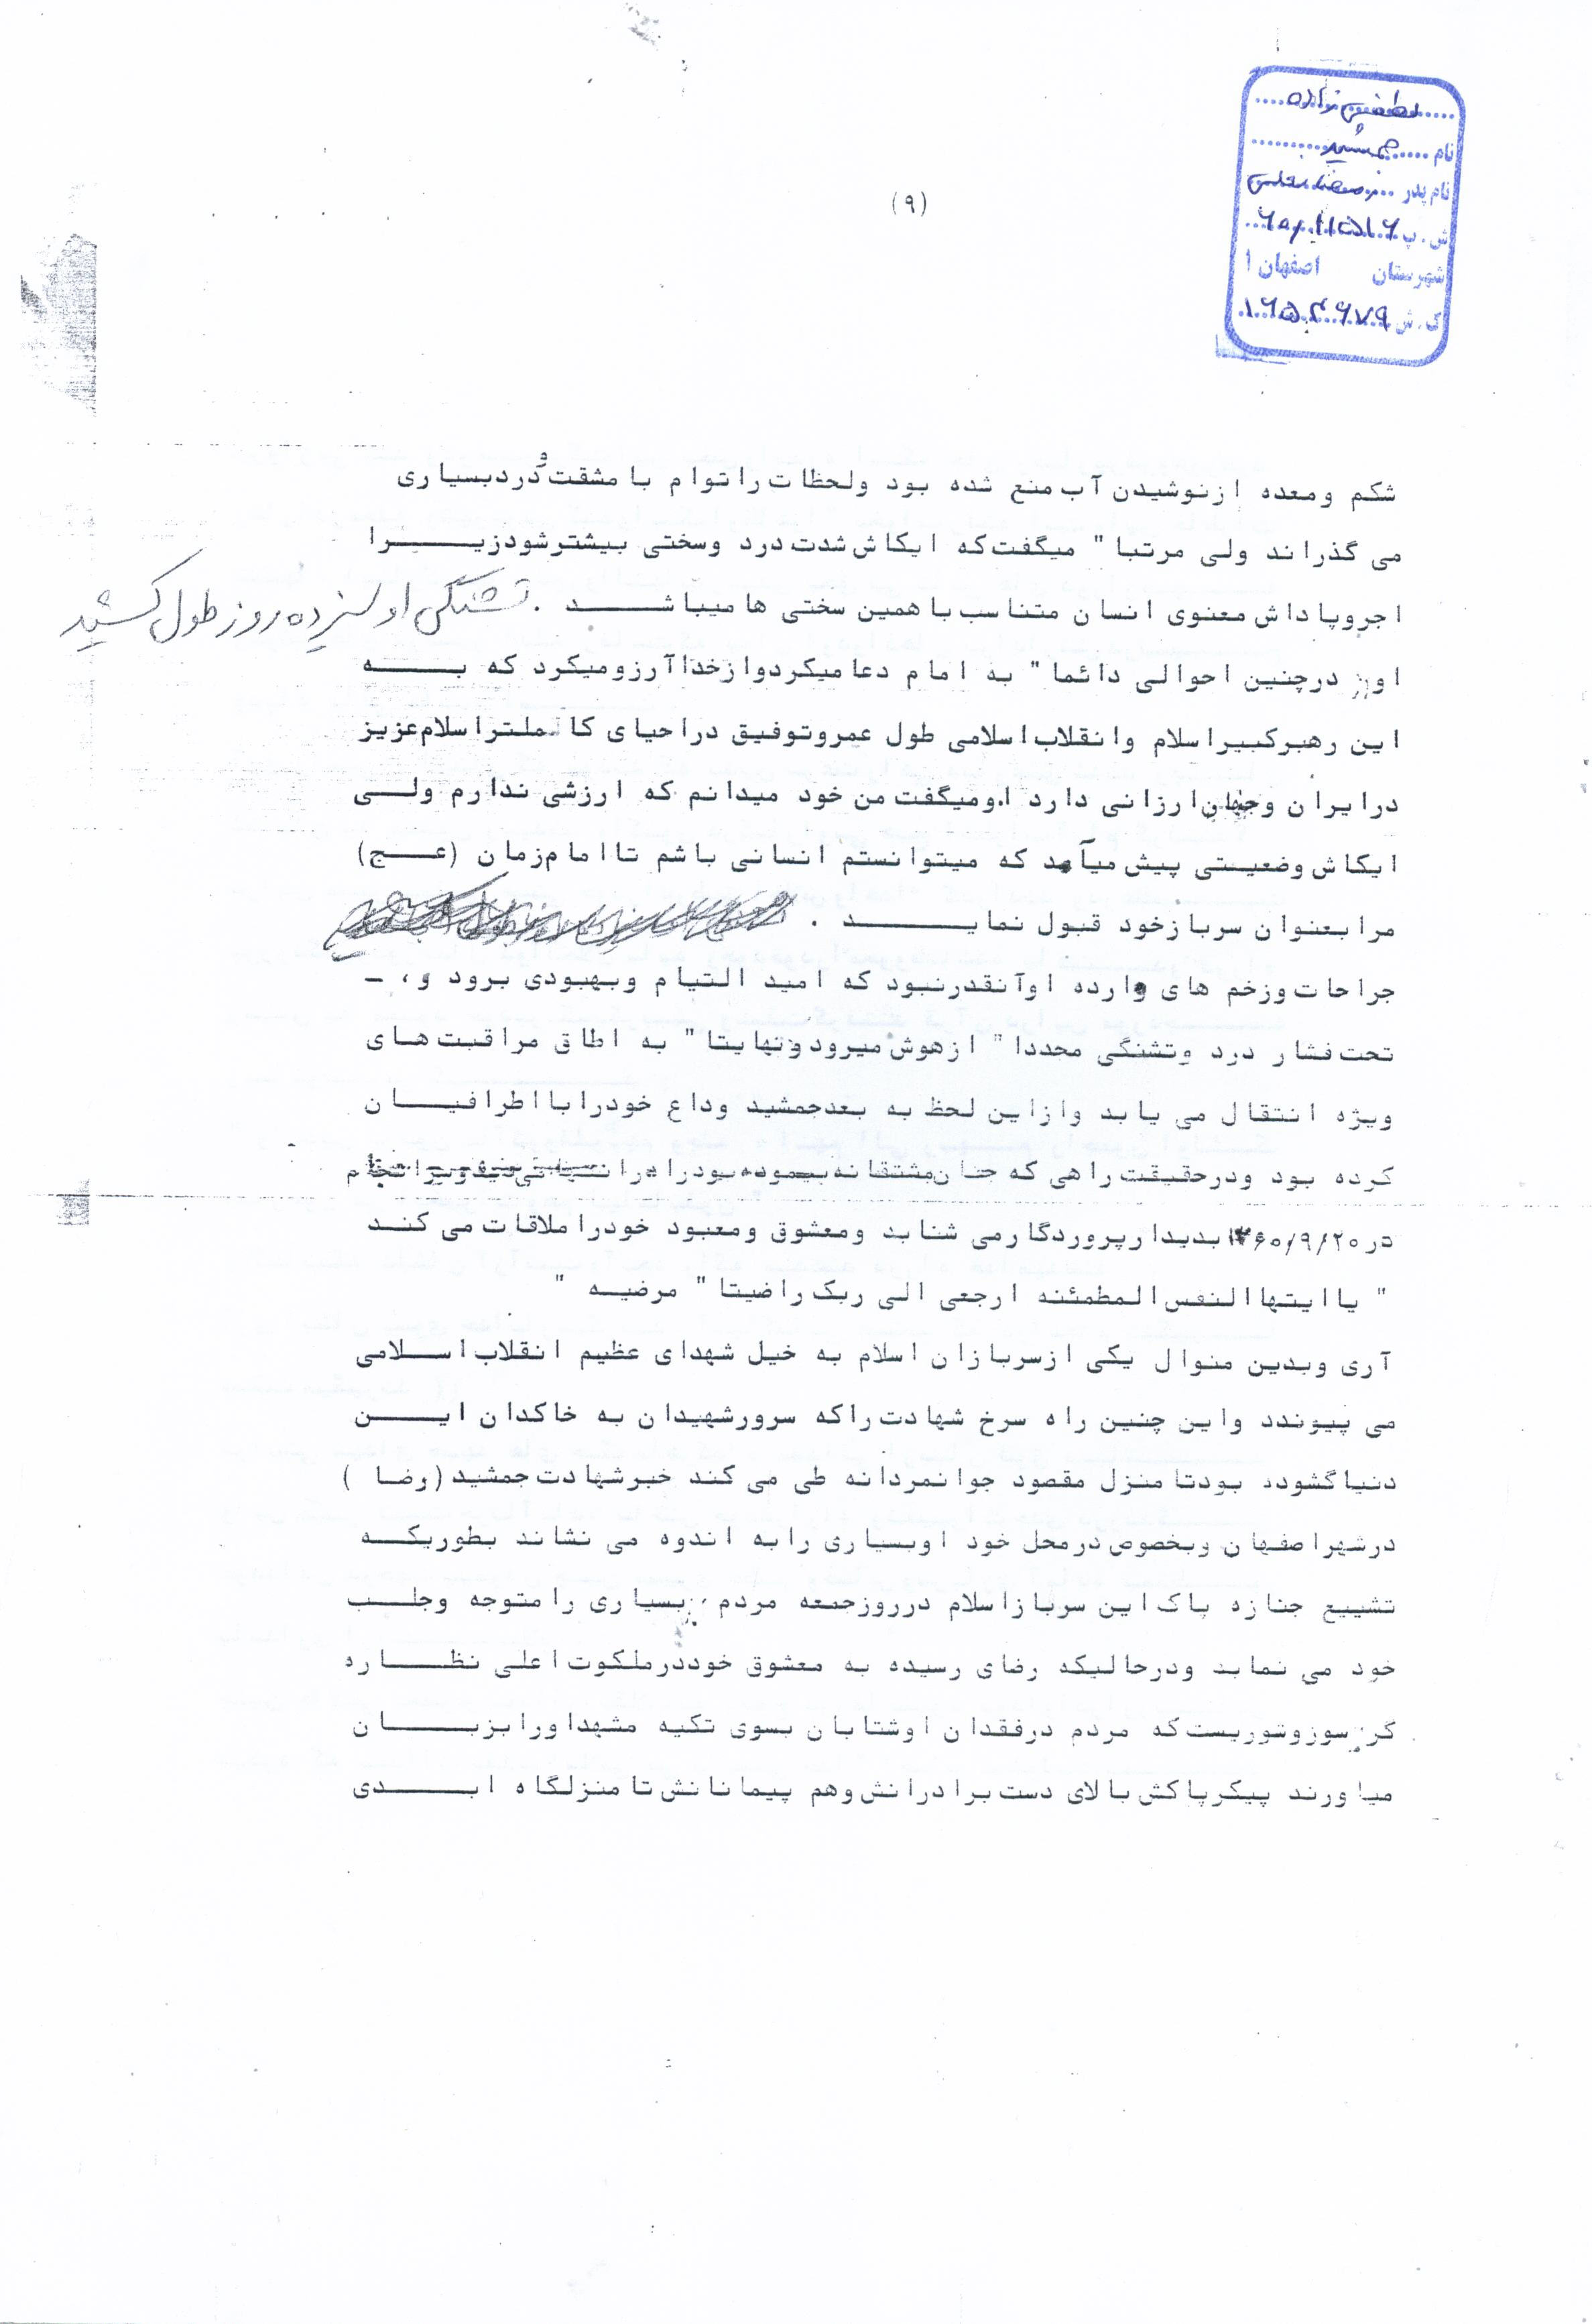 نام جمشید
نام پدر
ش.پ ۶۰۲۱۱۵۱۶
شهرستان اصفهان ۱
ک.ش ۱۶۵۴۶۷۹
(۹)
شکم ومعده ازنوشیدن آب منع شده بود ولحظات راتوام با مشقت و دردبسیاری
می گذراند ولی مرتبا" میگفت که ایکاش شدت درد وسختی بیشترشودزیرا
اجروپاداش معنوی انسان متناسب با همین سختی ها میباشد . تشنگی او سیزده روز طول کشید
او درچنین احوالی دائما" به امام دعا میکردوازخداآرزومیکرد که به
این رهبرکبیراسلام وانقلاب اسلامی طول عمروتوفیق دراحیای کاملتراسلام عزیز
درایران وجهان ارزانی دارد اومیگفت من خود میدانم که ارزشی ندارم ولی
ایکاش وضعیتی پیش میآمد که میتوانستم انسانی باشم تا امام زمان (عج)
مرا بعنوان سربازخود قبول نماید .
جراحات وزخم های وارده اوآنقدرنبود که امید التیام وبهبودی برود و، ـ
تحت فشار درد وتشنگی مجددا" ازهوش میرود ونهایتا" به اطاق مراقبت های
ویژه انتقال می یابد وازاین لحظ به بعدجمشید وداع خودرا با اطرافیان
کرده بود ودرحقیقت راهی که چنان مشتقانه پیموده بودرا درانجام
در ۱۳۶۰/۹/۲۰ بدیدارپروردگارمی شتابد ومعشوق ومعبود خودرا ملاقات می کند
" یا ایتها النفس المطمئنه ارجعی الی ربک راضیتا" مرضیه "
آری وبدین منوال یکی ازسربازان اسلام به خیل شهدای عظیم انقلاب اسلامی
می پیوندد واین چنین راه سرخ شهادت راکه سرورشهیدان به خاکدان این
دنیا گشوده بودتا منزل مقصود جوانمردانه طی می کند خبرشهادت جمشید (رضا )
درشهراصفهان وبخصوص درمحل خود اوبسیاری را به اندوه می نشاند بطوریکه
تشییع جنازه پاک این سربازاسلام درروزجمعه مردم بسیاری را متوجه وجلب
خود می نماید ودرحالیکه رضای رسیده به معشوق خوددرملکوت اعلی نظاره
گر سوزوشوریست که مردم درفقدان اوشتابان بسوی تکیه مشهداورابزبان
میاورند پیکرپاکش بالای دست برادرانش وهم پیمانانش تا منزلگاه ابدی